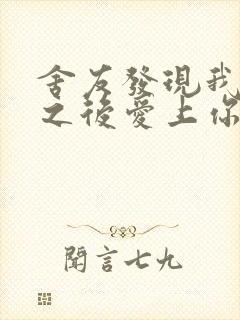 舍友發現我
之後愛上你
聞言七九